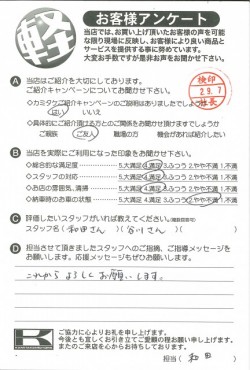 軽
お客様アンケート
当店では、お買い上げ頂いたお客様の声を可能
な限り現場に反映し、お客様により良い商品と
サービスを提供する事に努めています。
大変お手数ですが是非お声をお聞かせ下さい。
検印
29.7
社長
A 当店はご紹介を大切にしております。
ご紹介キャンペーンについてお聞かせ下さい。
◇カミタケご紹介キャンペーンのご説明はありましたでしょうか
はい いいえ
◇具体的にご紹介頂ける方とのご関係をお聞かせ下さい。
ご親戚 ご友人 職場の方 機会があれば紹介したい
B 当店を実際にご利用になった印象をお聞かせ下さい。
◇総合的な満足度 5大満足 4満足 3ふつう 2やや不満 1不満
◇スタッフの対応 5大満足 4満足 3ふつう 2やや不満 1不満
◇お店の雰囲気、清掃 5大満足 4満足 3ふつう 2やや不満 1不満
◇納車時のお車の状態 5大満足 4満足 3ふつう 2やや不満 1不満
C 評価したいスタッフがいれば教えてください。(複数回答可)
スタッフ名(和田さん)(谷川さん)
D 担当させて頂きましたスタッフへのご指摘、ご指導メッセージを
お願いします。応援メッセージもぜひお願いします。
これからよろしくお願いします。
K
ご協力に心よりお礼を申し上げます。
今後とも宜しくお引き立てご愛顧の程お願い申し上げます。
またのご来店を心からお待ちしております。
担当(和田)